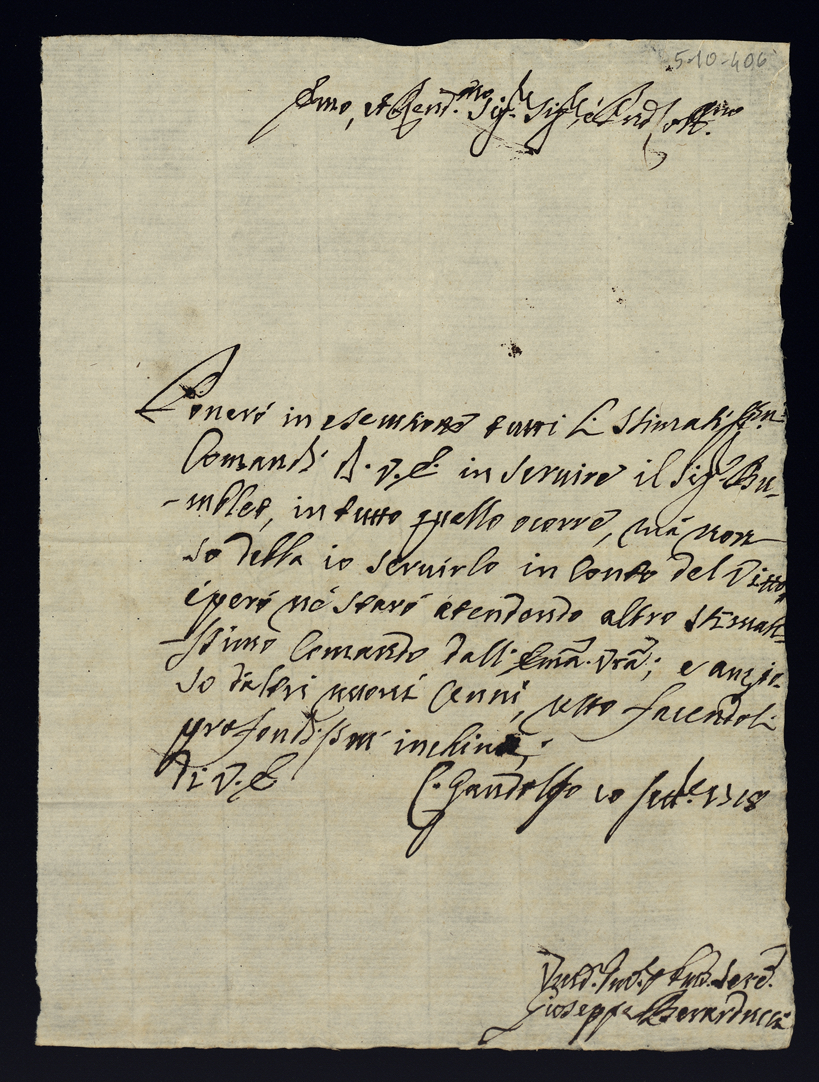 5-10-406
Emo, et Rend.mo Sig.r Sig.r è Prod.
Ponerò in esecutione tutti li stimatis.mi
Comandi di V. E. in servire il Sig.r Bu-
-mbler, in tutto quello ocorre, mà non
so della io servirlo in conto del Vitto,
è però nè starò atendendo altro stimatis-
-simo Comando dall' Em.a Vr̃a; e anzio-
so d'altri nuovi Cenni, resto facendoli
profondissimi inchini,
Di V. E.
C. Gandolfo 10 sett.e 1718
Giuseppe Berarducci